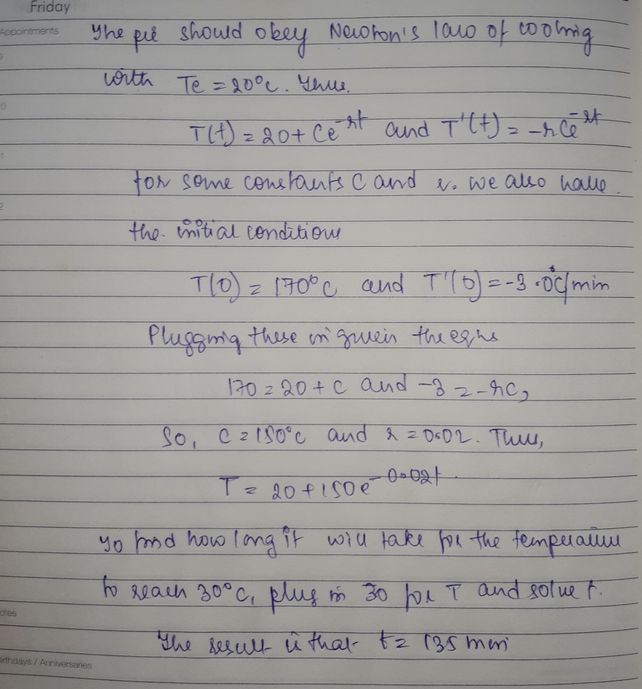 Friday
Appointments
The pie should obey Newton's law of cooling
with Te = 20°c. Thus.
T(t) = 20 + Ce^-rt and T'(t) = -rCe^-rt
for some constants C and r. we also have
the initial conditions
T(0) = 170°C and T'(0) = -3.0°C/min
Plugging these in gives the eqns
170 = 20 + C and -3 = -rC,
So, C = 150°C and r = 0.02. Thus,
T = 20 + 150e^-0.02t.
To find how long it will take for the temperature
to reach 30°C, plug in 30 for T and solve t.
otes
The result is that t = 135 min
irthdays / Anniversaries